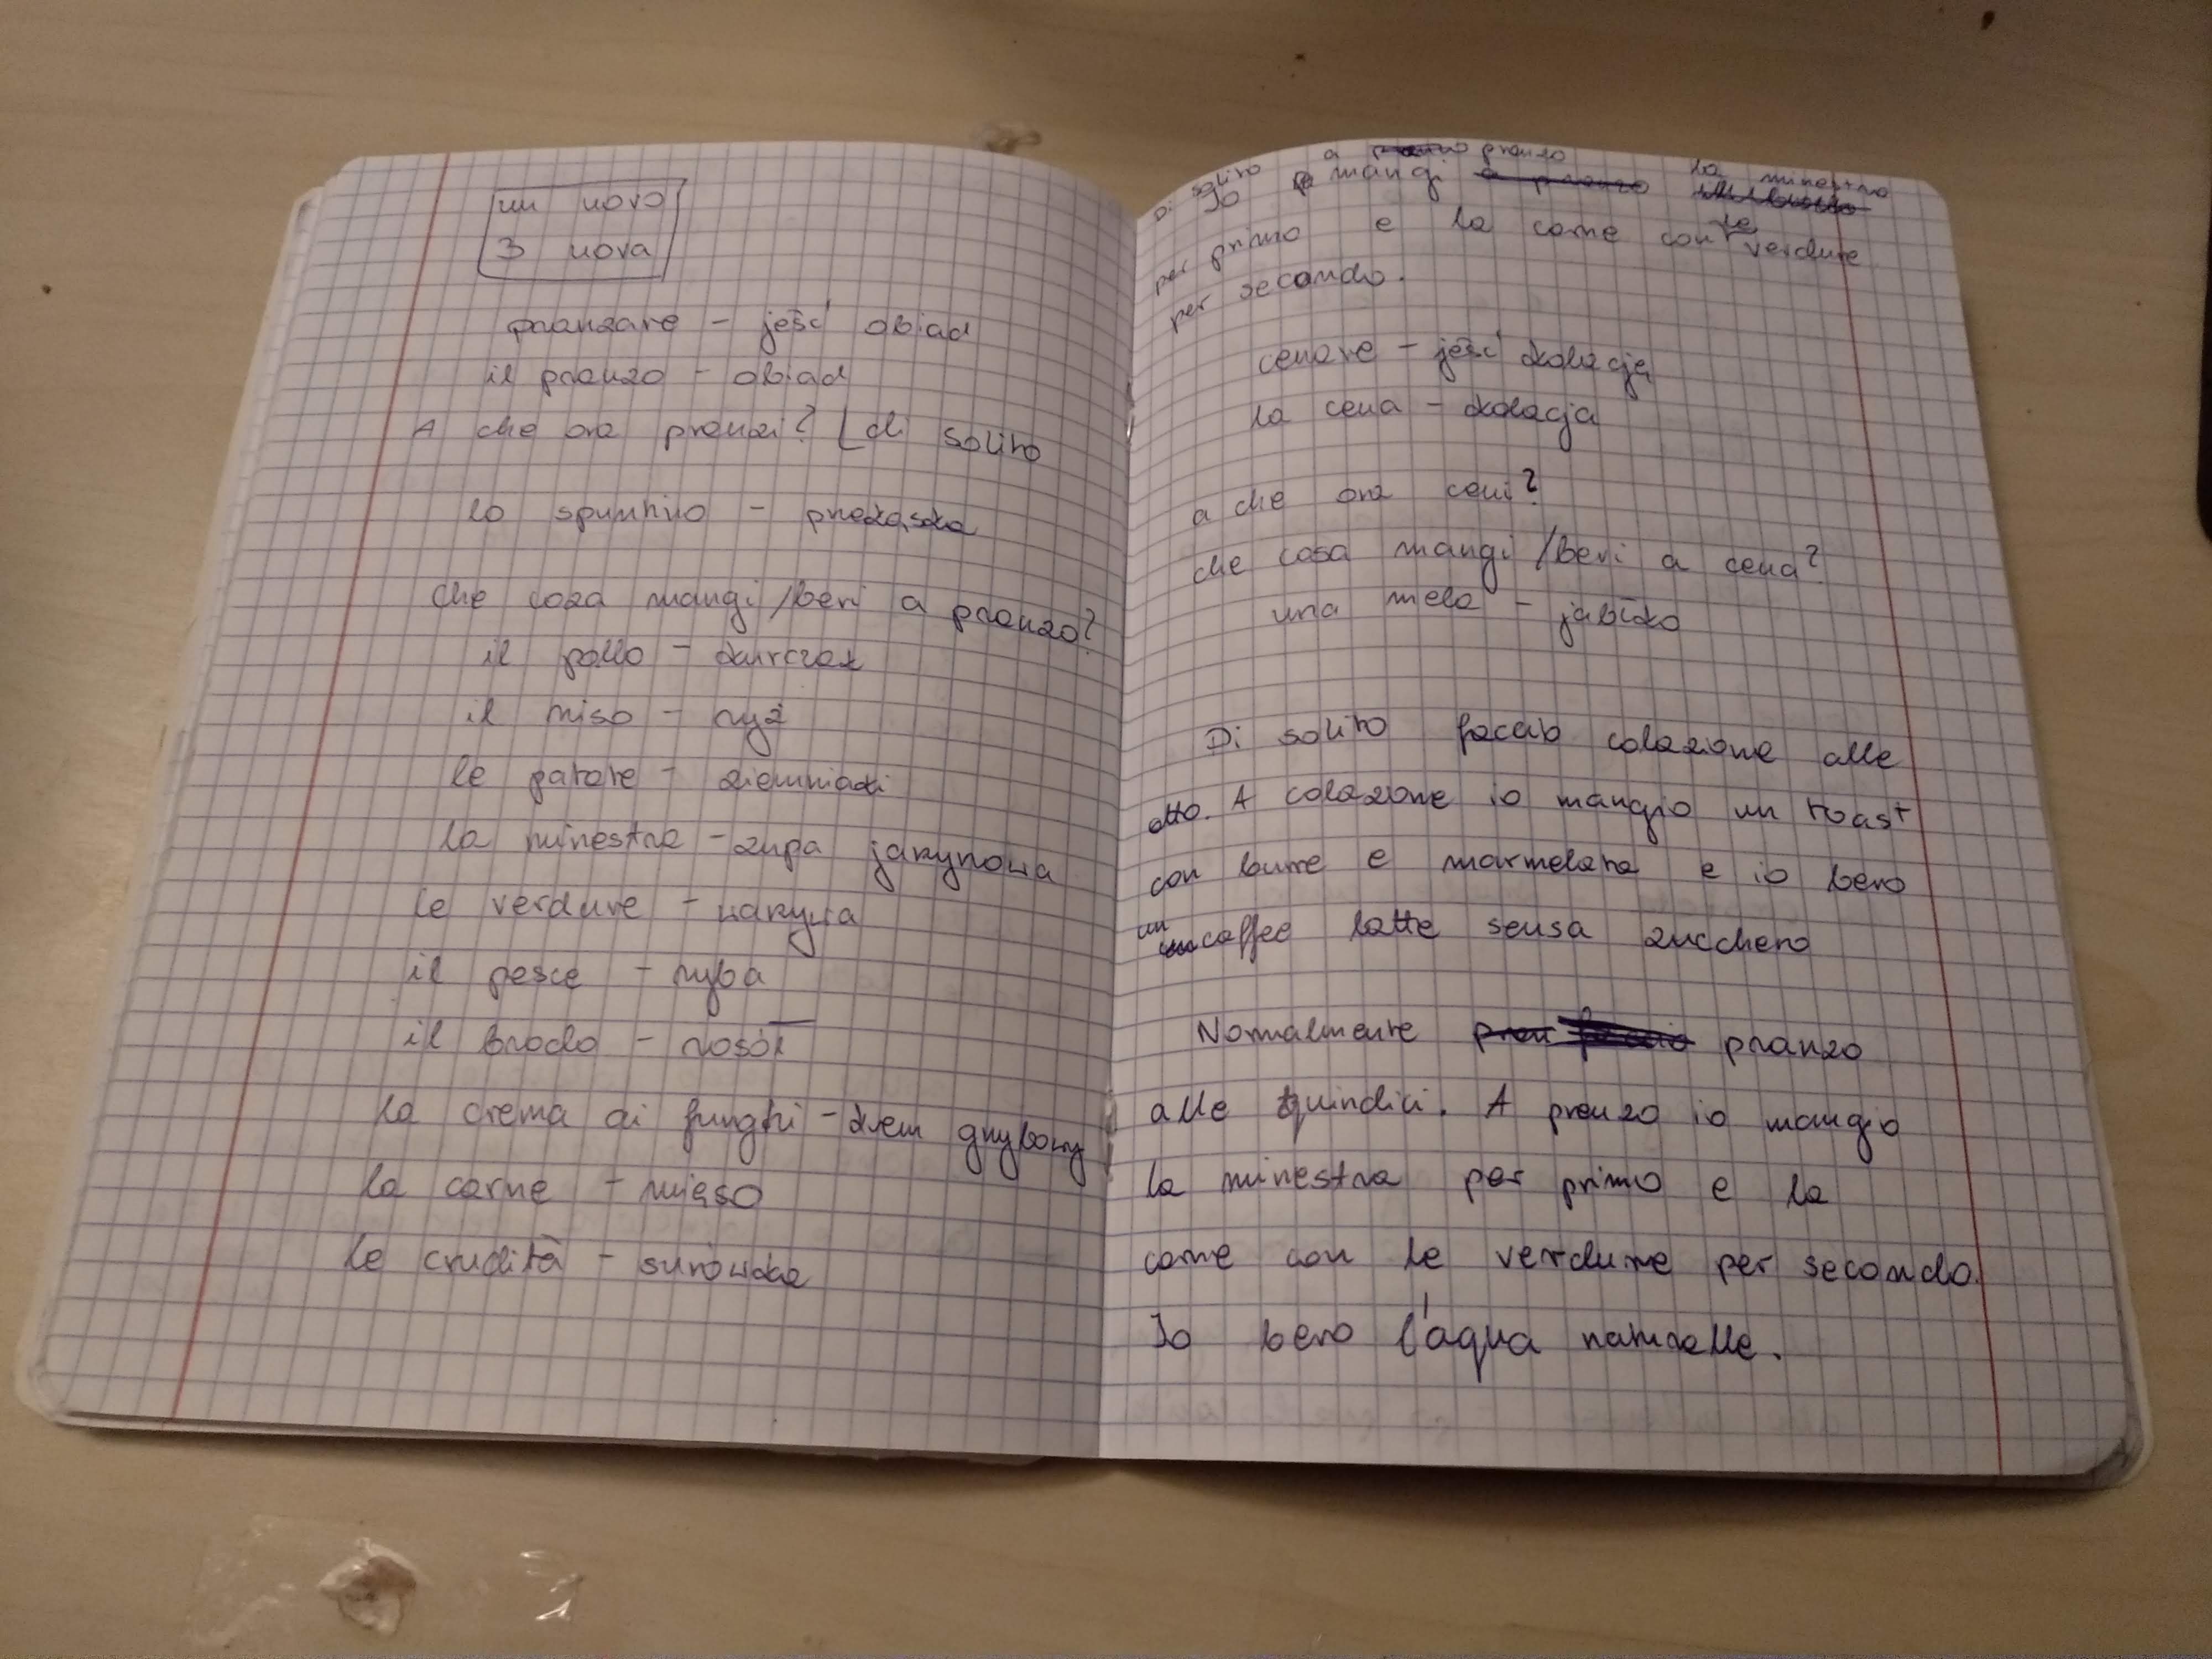 un uovo
3 uova
pranzare - jeść obiad
il pranzo - obiad
A che ora pranzi? di solito
lo spuntino - przekąska
che cosa mangi/bevi a pranzo?
il pollo - kurczak
il riso - ryż
le patate - ziemniaki
la minestra - zupa jarzynowa
le verdure - warzywa
il pesce - ryba
il brodo - rosół
la crema ai funghi - krem grzybowy
la carne - mięso
le crudità - surówka
Di solito a pranzo la minestra
Io mangi
per primo e la carne con le verdure
per secondo.
cenare - jeść kolację
la cena - kolacja
a che ora ceni?
che cosa mangi/bevi a cena?
una mela - jabłko
Di solito faccio colazione alle
otto. A colazione io mangio un toast
con burre e marmelata e io bevo
un caffee latte sensa zucchero
Normalmente pranzo
alle quindici. A pranzo io mangio
la minestra per primo e la
carne con le verdure per secondo.
Io bevo l'aqua naturalle.